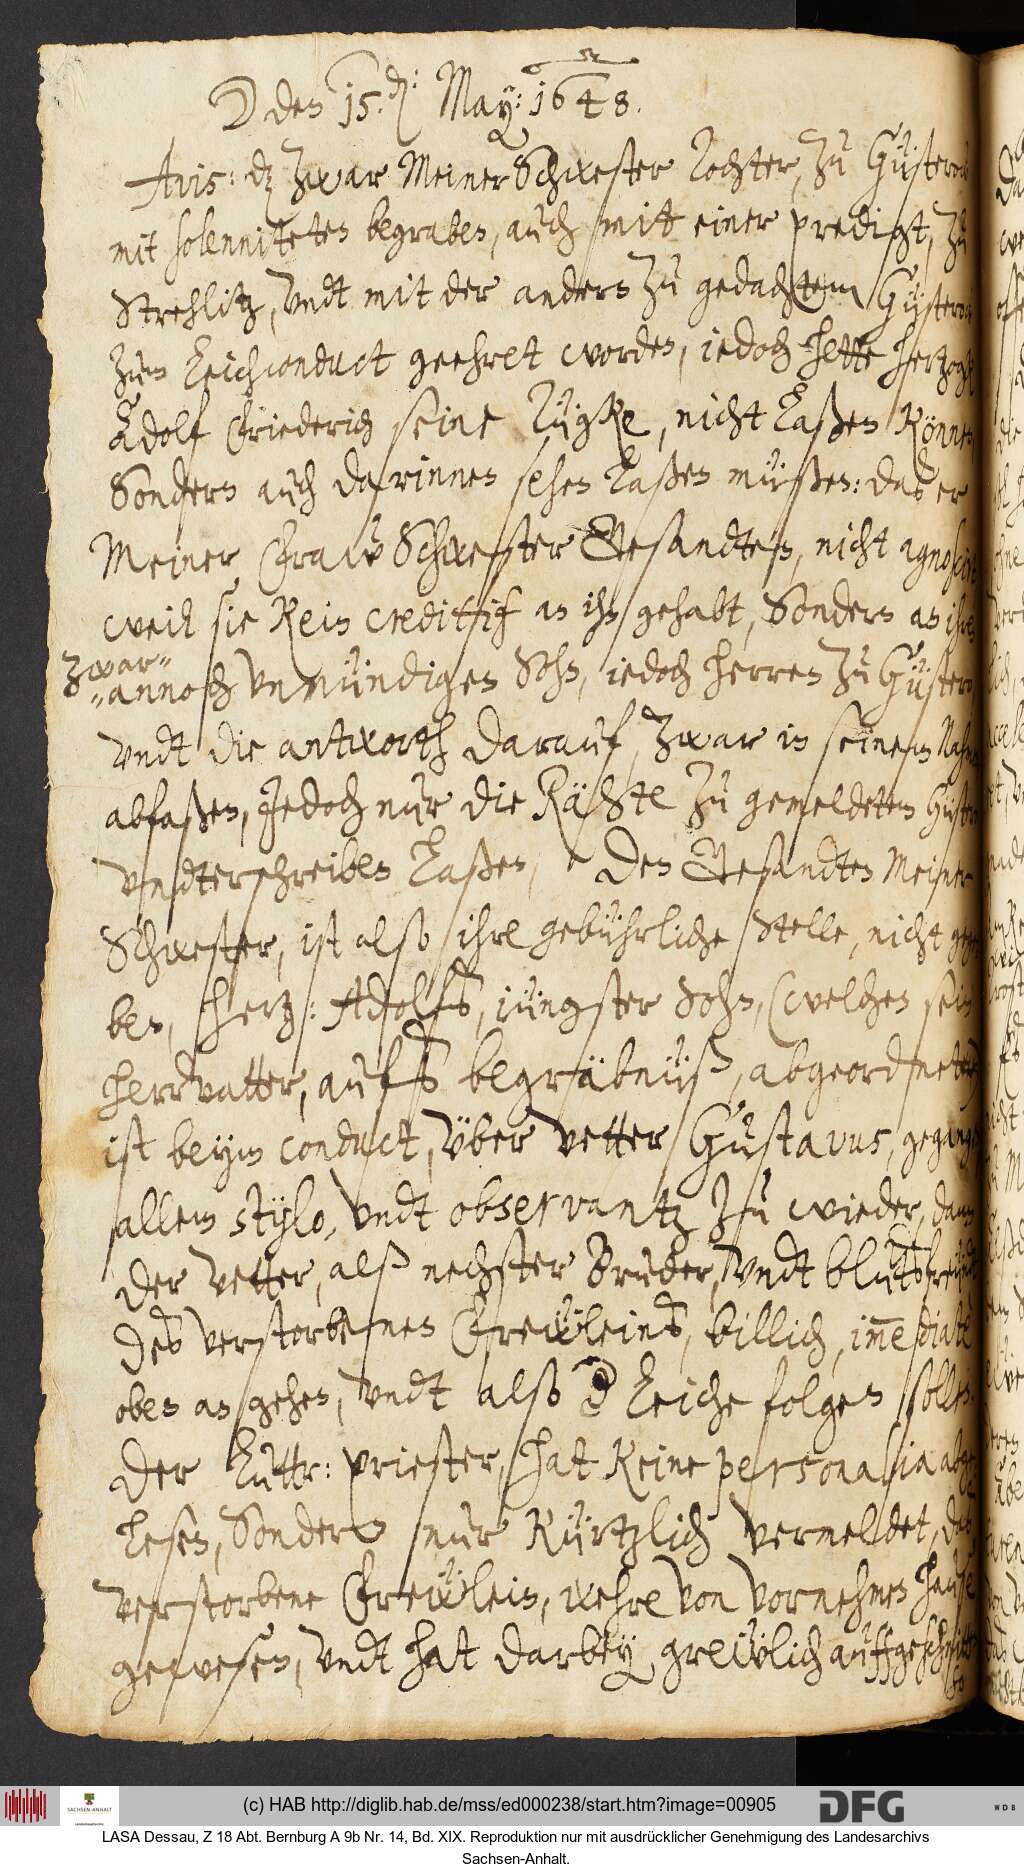 den 15.d: May: 1648.
Avis: dz zwar Meiner Schwester Tochter, zu Güstrow
mit solenniteten begraben, auch mitt einer predigt, zu
Strehlitz, vndt mit der andern zu gedachtem Güstrow
zum Leichconduct geehret worden, iedoch hette hertzogk
Adolf Friederich seine Tügke, nicht Laßen können
Sondern auch darinnen sehen Laßen müßen: das er
Meiner Fraw Schwester Gesandten, nicht agnoscirt
weil sie kein creditif an ihn gehabt, Sondern an ihren
zwar
annoch vnmündigen Sohn, iedoch herren zu Güstrow
vndt die antworth darauf, zwar in seinem Nahmen
abfaßen, Jedoch nur die Rähte zu gemeldetem Güstrow
vndterschreiben Laßen, Den Gesandten Meiner
Schwester, ist also ihre gebührliche Stelle, nicht gege
ben, hertz: Adolfs, iüngster Sohn, (welchen sein
herrvatter, aufs begräbnüß, abgeordnetet)
ist beym conduct, über vetter Gustavus, gegangen
allem stylo, vndt observantz zu wieder, dann
der vetter, alß nechster Bruder, vndt blutsfreündt
des verstorbenen Frewleins, billich, im̄ediate
oben an gehen, vndt also d Leiche folgen sollen.
Der Luttr: priester, hat keine personalia abge
Lesen, Sondern nur kürtzlich vermeldet, das
verstorbene Frewlein, wehre von vornehmen hause
gewesen, vndt hat darbey grewlich auffgeschnitten
(c) HAB http://diglib.hab.de/mss/ed000238/start.htm?image=00905
SACHSEN-ANHALT
DFG
WDB
LASA Dessau, Z 18 Abt. Bernburg A 9b Nr. 14, Bd. XIX. Reproduktion nur mit ausdrücklicher Genehmigung des Landesarchivs
Sachsen-Anhalt.